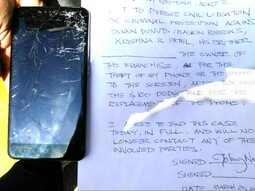 I TO PERSUE CIVIL LITIGATION
OR CRIMINAL PROSECUTION AGAINST
DUNKIN DONUTS / BASKIN ROBBINS,
KRISHNA R. PATEL, HIS
THE OWNER OF
THE FRANCHISE FOR THE
THEFT OF MY PHONE OR THE
TO THE SCREEN, AFTER
THE $100 DEDUCTIBLE FOR THE
REPLACEMENT OF THE PHONE.
I AGREE TO END THIS CASE
TODAY, IN FULL, AND WILL NO
LONGER CONTACT ANY OF THE
INVOLVED PARTIES.
SIGNED
SIGNED
DATE MARCH